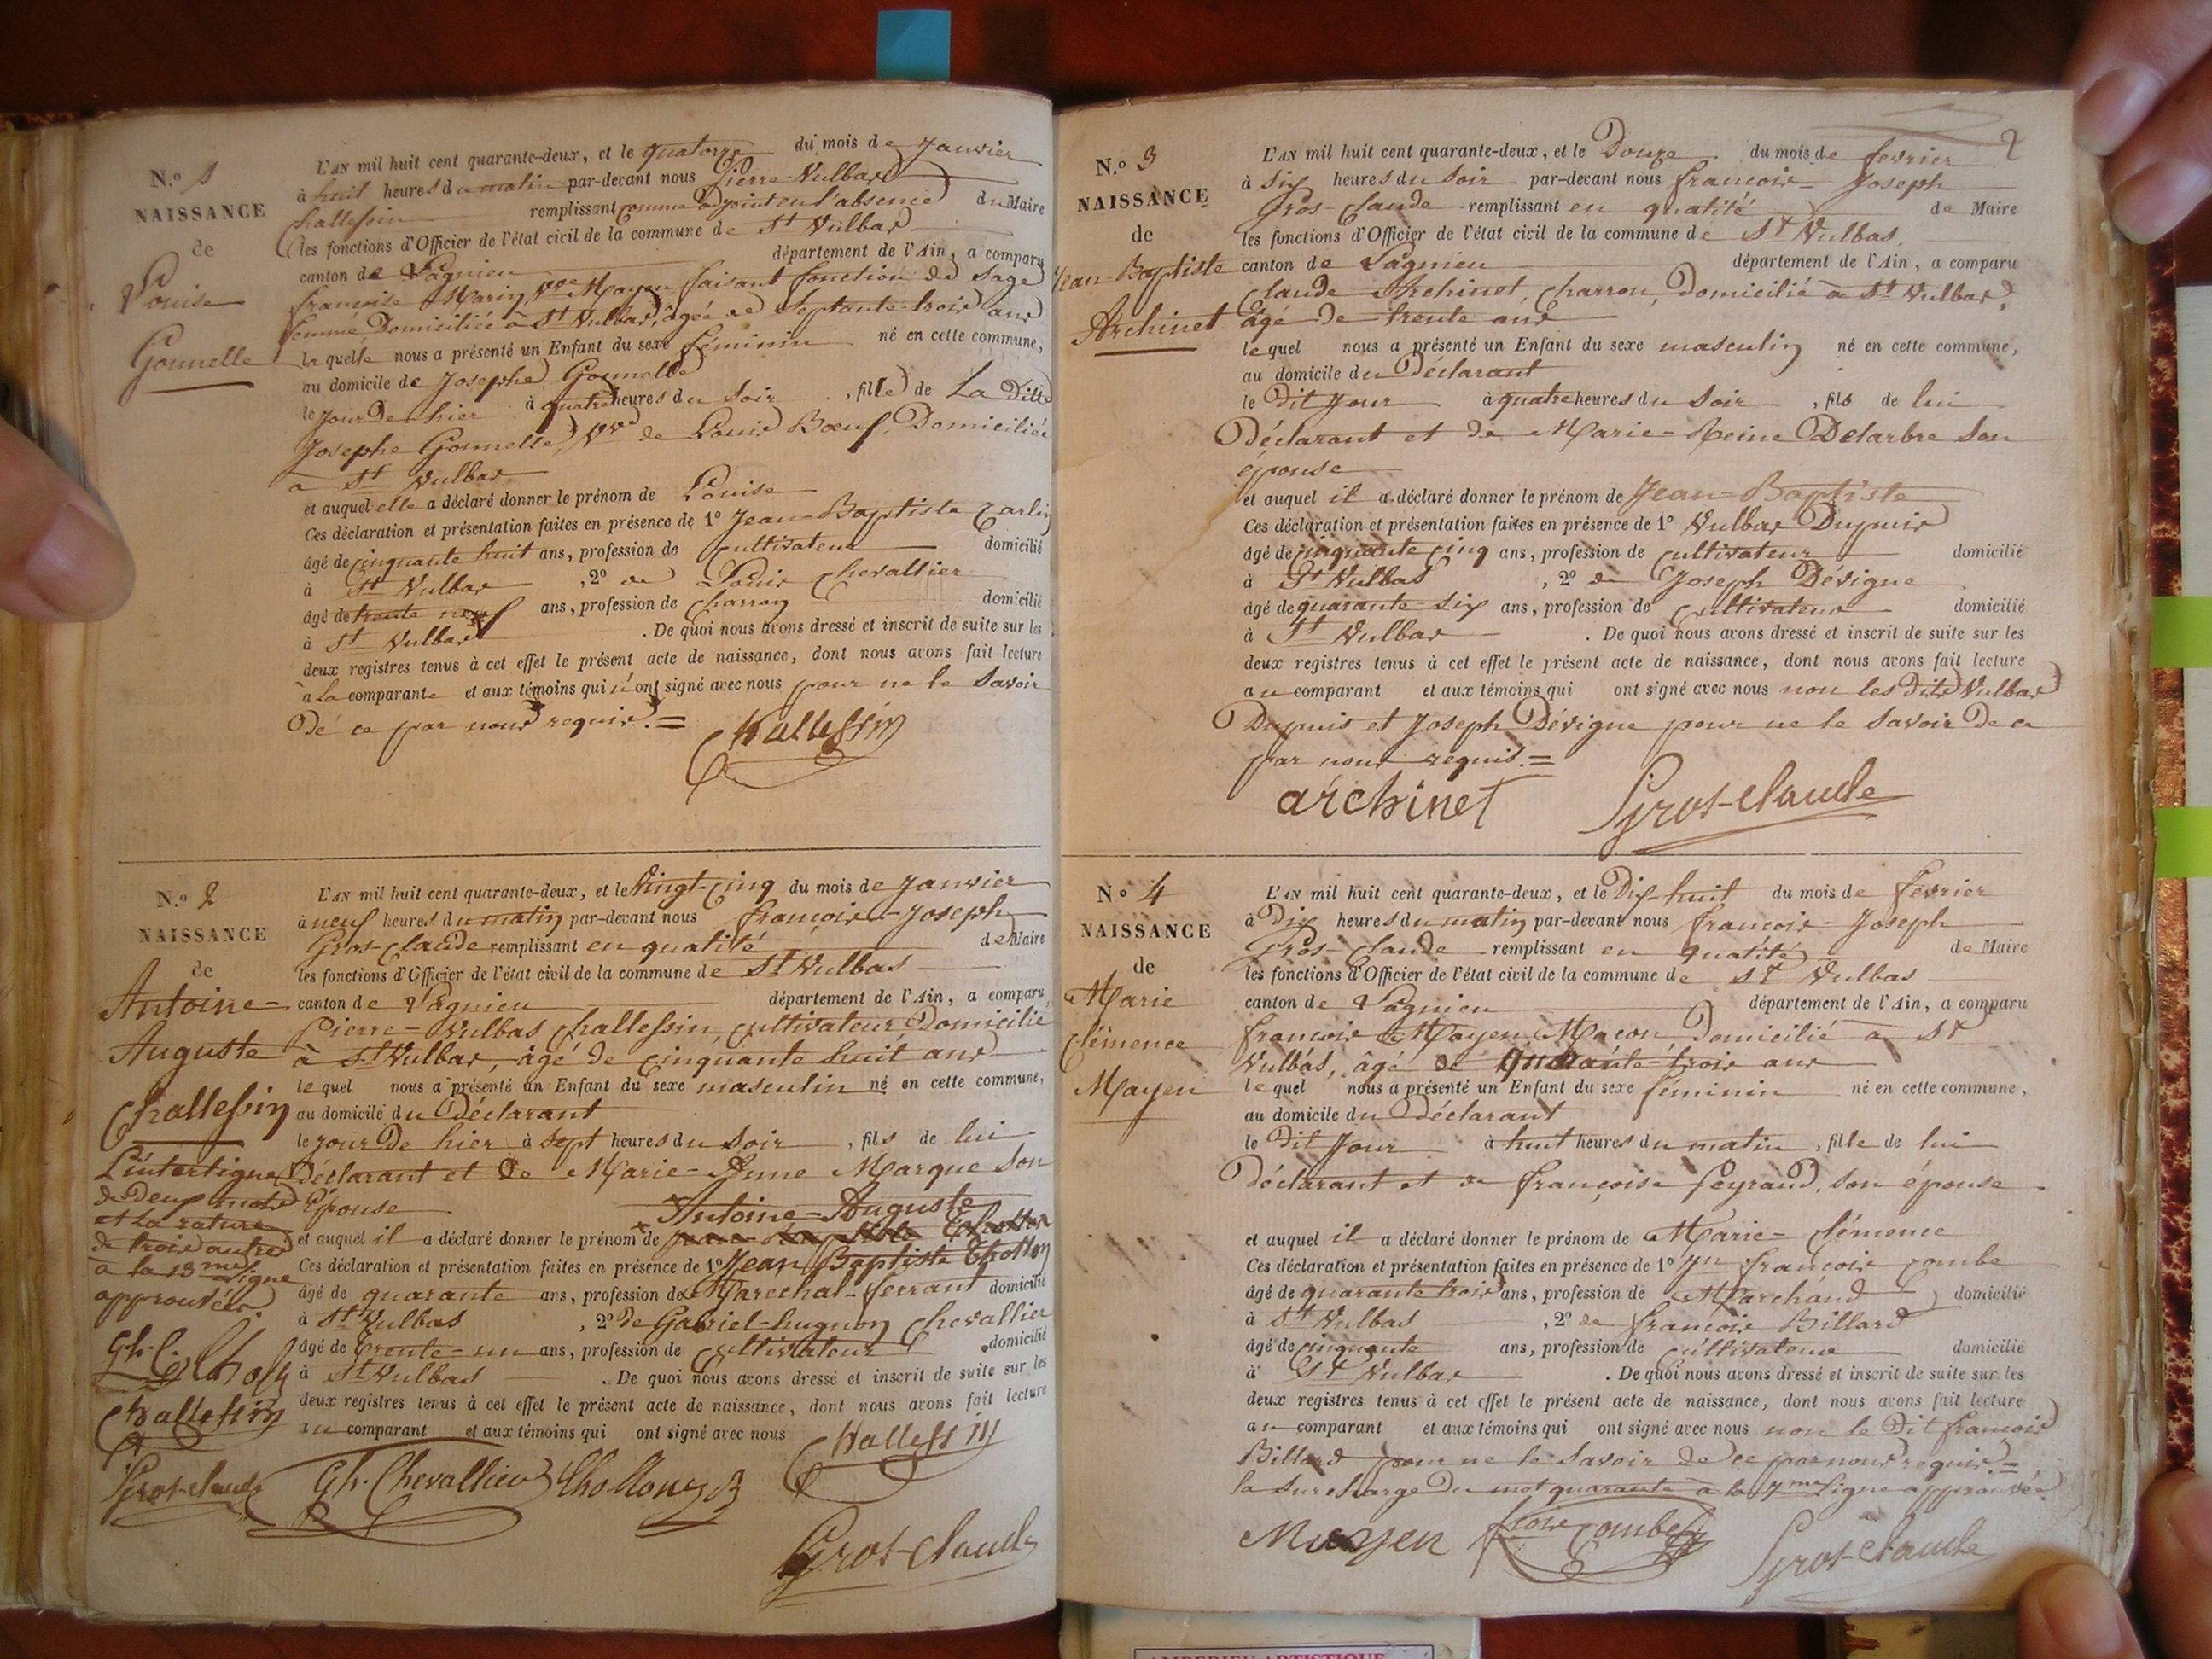 N.o 1
NAISSANCE
de
Louise
Gonnelle
L'AN mil huit cent quarante-deux, et le quatorze du mois de Janvier
à huit heures du matin par-devant nous Pierre-Vulbas
Challessin remplissant comme adjoint en l'absence du Maire
les fonctions d'Officier de l'état civil de la commune de St Vulbas
canton de Lagnieu département de l'Ain, a comparu
françoise Marin, Vve Mayen faisant fonction de Sage
femme Domiciliée à St Vulbas, âgée de Septante-trois ans
la quelle nous a présenté un Enfant du sexe féminin né en cette commune,
au domicile de Josephe Gonnelle
le jour De hier à quatre heures du Soir, fille de La Dite
Josephe Gonnelle, Vve de Louis Bœuf, Domiciliée
à St Vulbas
et auquel elle a déclaré donner le prénom de Louise
Ces déclaration et présentation faites en présence de 1o Jean-Baptiste
âgé de cinquante huit ans, profession de cultivateur domicilié
à St Vulbas, 2o de Louis Chevallier
âgé de trente neuf ans, profession de Charron domicilié
à St Vulbas. De quoi nous avons dressé et inscrit de suite sur les
deux registres tenus à cet effet le présent acte de naissance, dont nous avons fait lecture
à la comparante et aux témoins qui n'ont signé avec nous pour ne le Savoir
Dé ce par nous requis. =
Challessin
N.o 2
NAISSANCE
de
Antoine-
Auguste
Challessin
L'interligne
de Deux mots
et la rature
de trois autres
à la 13me Ligne
approuvées
Challessin
Gros-claude
L'AN mil huit cent quarante-deux, et le Vingt-cinq du mois de Janvier
à neuf heures du matin par-devant nous françois-Joseph
Gros-Claude remplissant en qualité de Maire
les fonctions d'Officier de l'état civil de la commune de St Vulbas
canton de Lagnieu département de l'Ain, a comparu
Pierre-Vulbas Challessin, cultivateur Domicilié
à St Vulbas, âgé de cinquante huit ans
lequel nous a présenté un Enfant du sexe masculin né en cette commune,
au domicile du Déclarant
le jour De hier à sept heures du Soir, fils de lui
Déclarant et De Marie-Anne Marque Son
Épouse
Antoine-Auguste
et auquel il a déclaré donner le prénom de
Ces déclaration et présentation faites en présence de 1o Jean Baptiste Chollon
âgé de quarante ans, profession de Marechal-ferrant domicilié
à St Vulbas, 2o de Gabriel-hugnon Chevallier
âgé de trente-un ans, profession de Cultivateur domicilié
à St Vulbas. De quoi nous avons dressé et inscrit de suite sur les
deux registres tenus à cet effet le présent acte de naissance, dont nous avons fait lecture
au comparant et aux témoins qui ont signé avec nous
Challessin
Gh. Chevallier Chollon
Gros-claude
2
N.o 3
NAISSANCE
de
Jean-Baptiste
Archinet
L'AN mil huit cent quarante-deux, et le Douze du mois de fevrier
à six heures du Soir par-devant nous françois-Joseph
Gros-Claude remplissant en qualité de Maire
les fonctions d'Officier de l'état civil de la commune de St Vulbas,
canton de Lagnieu département de l'Ain, a comparu
Claude Archinet, Charron, Domicilié à St Vulbas,
âgé De trente ans
lequel nous a présenté un Enfant du sexe masculin né en cette commune,
au domicile du Déclarant
le Dit Jour à quatre heures du Soir, fils de lui
Déclarant et de Marie-Reine Delarbre Son
épouse
et auquel il a déclaré donner le prénom de Jean-Baptiste
Ces déclaration et présentation faites en présence de 1o Vulbas Dupuis
âgé de cinquante cinq ans, profession de cultivateur domicilié
à St Vulbas, 2o de Joseph Dévigne
âgé de quarante-six ans, profession de Cultivateur domicilié
à St Vulbas. De quoi nous avons dressé et inscrit de suite sur les
deux registres tenus à cet effet le présent acte de naissance, dont nous avons fait lecture
au comparant et aux témoins qui ont signé avec nous non les dits Vulbas
Dupuis et Joseph Dévigne pour ne le Savoir De ce
par nous requis. =
archinet Gros-claude
No 4
NAISSANCE
de
Marie
Clémence
Mayen
L'AN mil huit cent quarante-deux, et le Dix-huit du mois de février
à Dix heures du matin par-devant nous françois-Joseph
Gros-Claude remplissant en qualité de Maire
les fonctions d'Officier de l'état civil de la commune de St Vulbas
canton de Lagnieu département de l'Ain, a comparu
françois Mayen, Maçon, Domicilié à St
Vulbas, âgé de quarante-trois ans
lequel nous a présenté un Enfant du sexe féminin né en cette commune,
au domicile du Déclarant
le Dit Jour à huit heures du matin, fille de lui
Déclarant et de françoise feyraud, son épouse.
et auquel il a déclaré donner le prénom de Marie-Clémence
Ces déclaration et présentation faites en présence de 1o Jn françois Combe
âgé de quarante trois ans, profession de Marchand domicilié
à St Vulbas, 2o de françois Billard
âgé de cinquante ans, profession de cultivateur domicilié
à St Vulbas. De quoi nous avons dressé et inscrit de suite sur les
deux registres tenus à cet effet le présent acte de naissance, dont nous avons fait lecture
au comparant et aux témoins qui ont signé avec nous non le Dit françois
Billard pour ne le Savoir de ce par nous requis. =
la surcharge Du mot quarante à la 7me Ligne approuvée.
Mayen fçois Combe Gros-claude